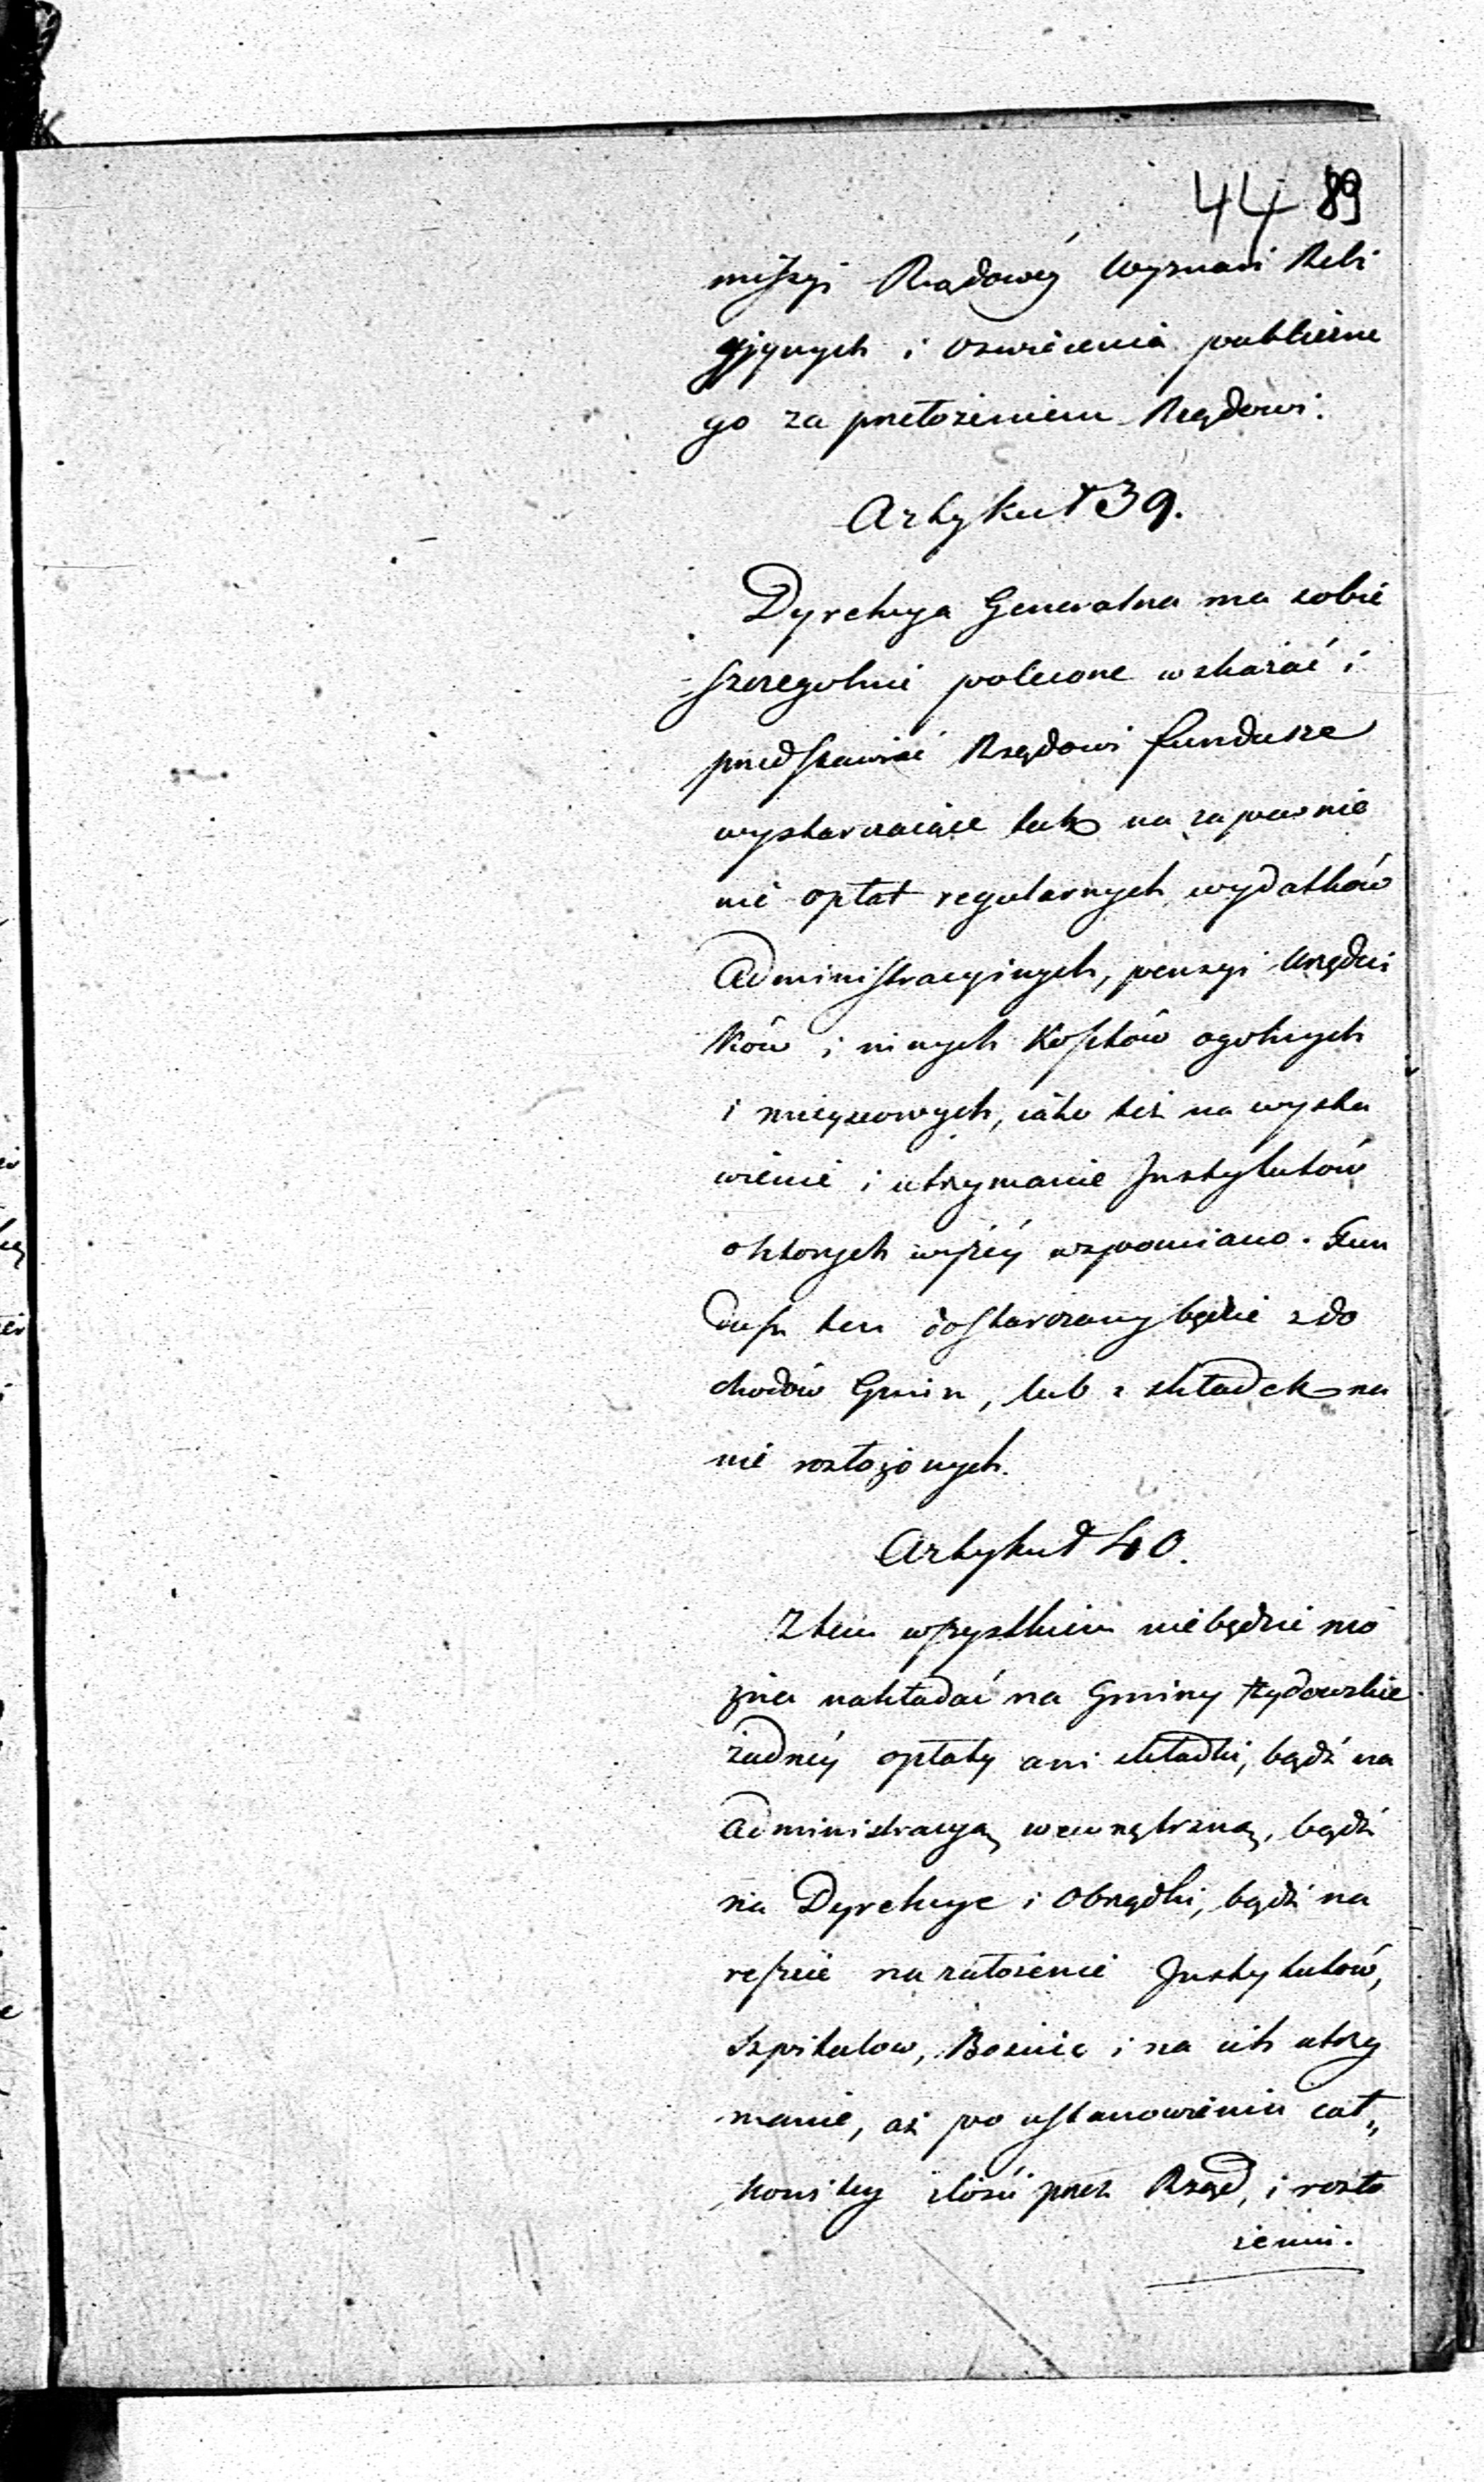 44 89
missyi Rządowéy Wyznań Reli
gijnych i Oswiecenia publiczne
go za przełożeniem Rządowi.
Artykuł 39.
Dyrekcya Generalna ma sobie
szczegolnie polecone wskazać i
przedstawiać Rządowi fundusze
wystarczaiące tak na zapewnie
nie opłat regularnych wydatków
Administracyinych, pensyi Urzędni
ków i innych Kosztów ogolnych
i mieyscowych, iako też na wysta
wienie i utrzymanie Instytutów
o których wyżéy wspomniano. Fun
dusz ten dostarczany będzie z do
chodów Gmin, lub z składek na
nie rozłożonych.
Artykuł 40.
Z tem wszystkiem nie będzie mo
żna nakładać na Gminy Żydowskie
żadnéy opłaty ani składki, bądź na
Administracyą wewnętrzną, bądź
na Dyrekcye i Obrządki, bądź na
reszcie na założenie Instytutów,
Szpitalow, Boznic i na ich utrzy
manie, aż po ustanowieniu cał„
kowitey ilości przez Rząd, i rozło
żeniu.